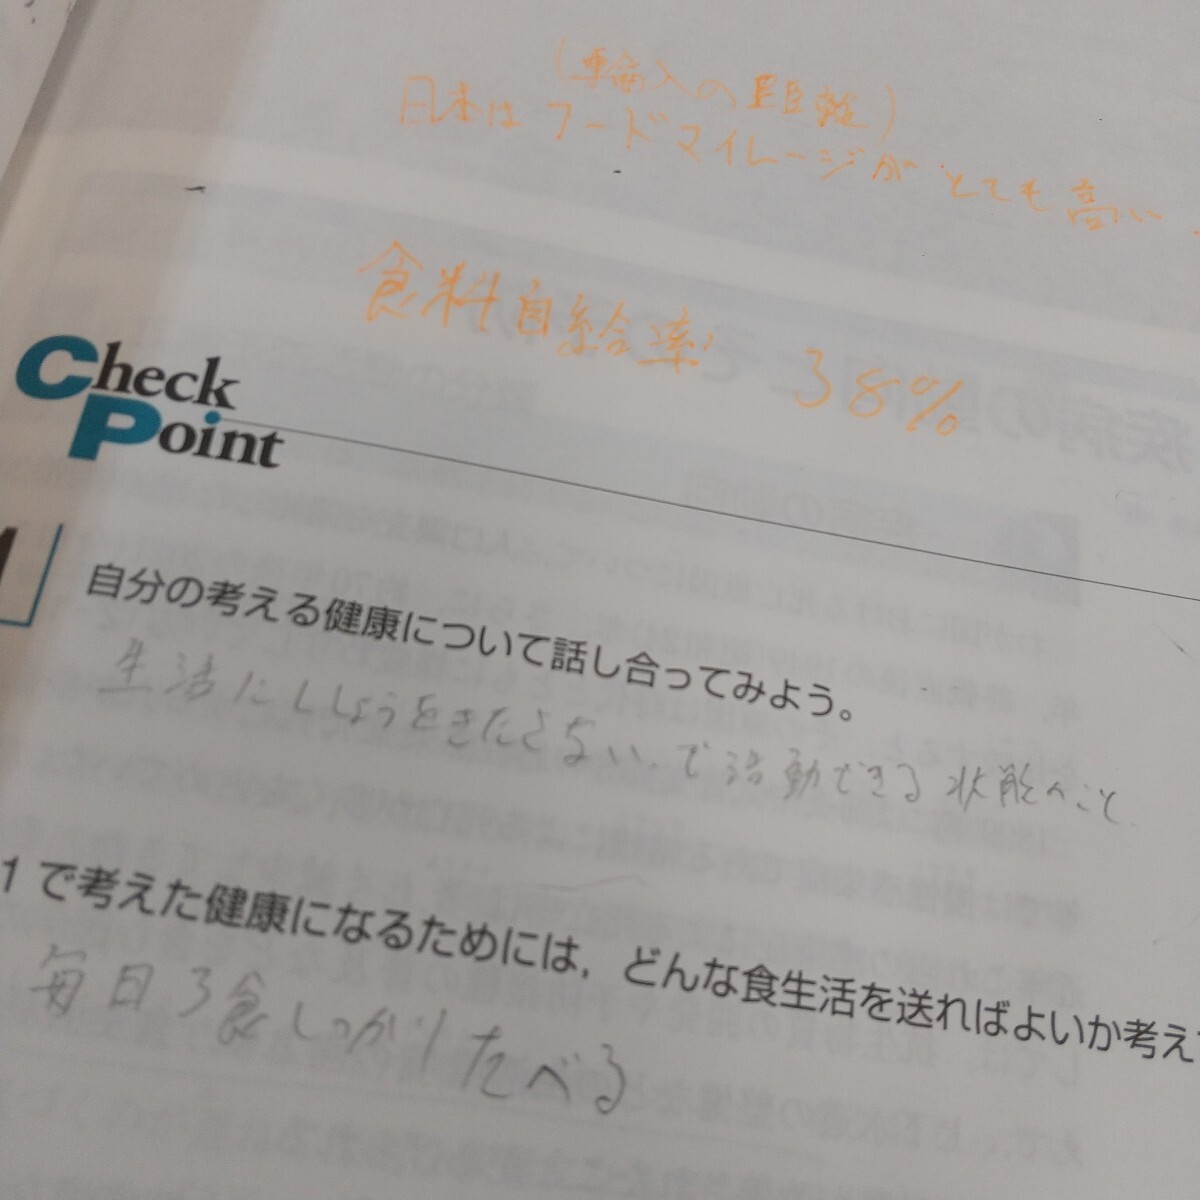 (輸入の距離)
日本はフードマイレージがとても高い
食料自給率 38%
Check
Point
1
自分の考える健康について話し合ってみよう。
生活にししょうをきたさないで活動できる状態のこと
1で考えた健康になるためには，どんな食生活を送ればよいか考え
毎日3食しっかりたべる